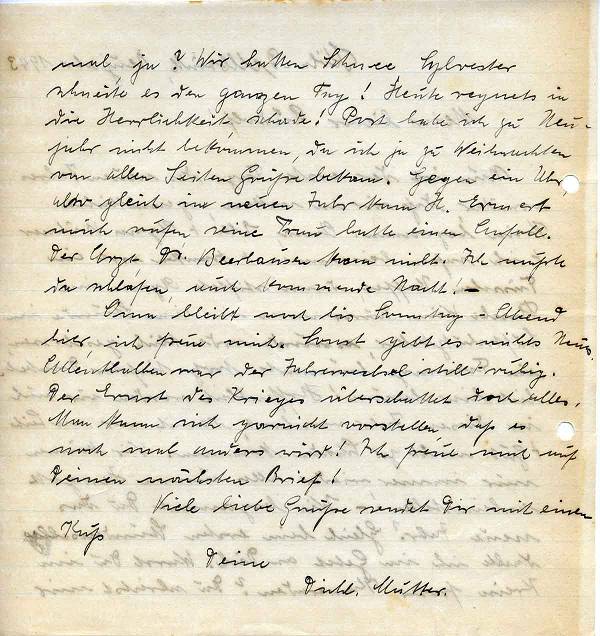 mal, ja? Wir hatten Schnee Sylvester
schneite es den ganzen Tag! Heute regnets in
die Herrlichkeit, schade! Post habe ich zu Neu-
jahr nicht bekommen, da ich ja zu Weihnachten
von allen Seiten Grüße bekam. Gegen ein Uhr,
also gleich im neuen Jahr kam H. Ermert
mich rufen seine Frau hatte einen Anfall.
Der Arzt Dr. Beerhausen kam nicht. Ich mußte
da schlafen, auch kommende Nacht! –
Oma bleibt noch bis Sonntag-Abend
hier, ich freue mich. Sonst gibt es nichts Neues.
Allenthalben war der Jahreswechsel still & ruhig.
Der Ernst des Krieges überschattet doch alles.
Man kann sich garnicht vorstellen, daß es
noch mal anders wird! Ich freue mich auf
Deinen nächsten Brief!
Viele liebe Grüße sendet Dir mit einem
Kuß
Deine
Mutter.